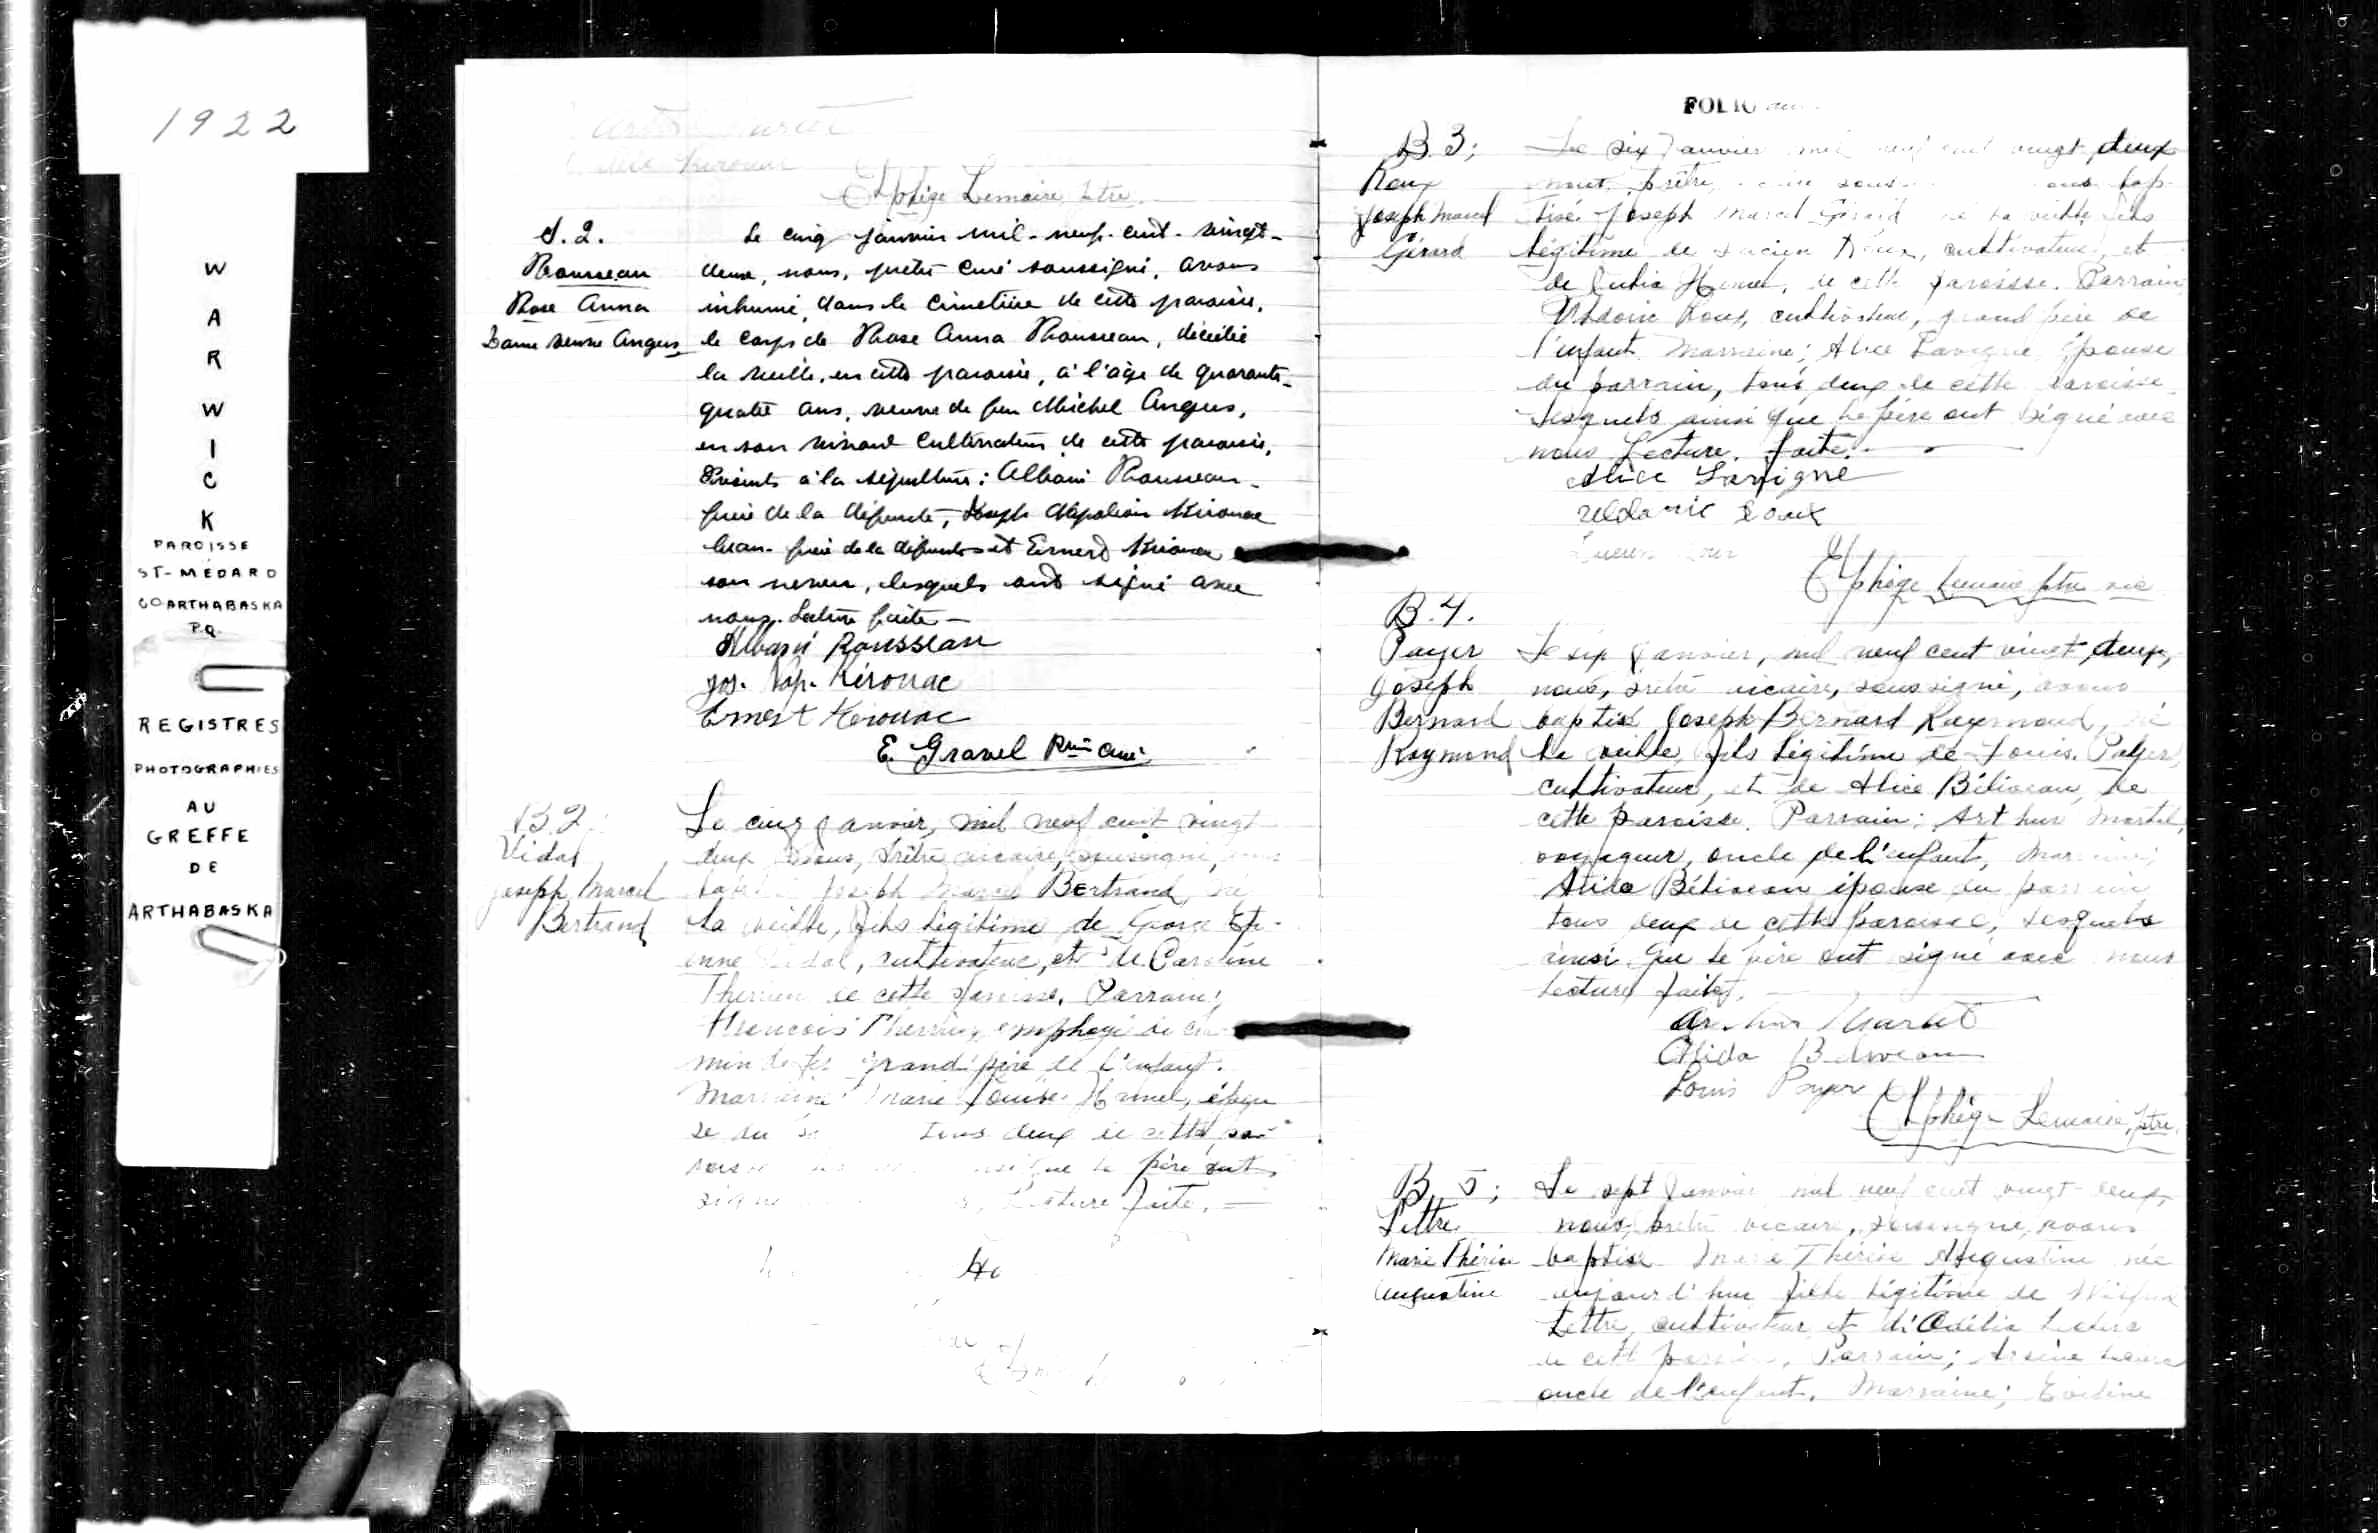 1922
WARWICK
PAROISSE
ST-MÉDARD
CO ARTHABASKA
P.Q.
REGISTRES
PHOTOGRAPHIES
AU
GREFFE
DE
ARTHABASKA
Elphège Lemaire, ptre.
S. 2.
Rousseau
Rose Anna
Dame veuve Angus
Le cinq janvier mil-neuf-cent-vingt-
deux, nous, prêtre curé soussigné, avons
inhumé, dans le cimetière de cette paroisse,
le corps de Rose Anna Rousseau, décédée
la veille, en cette paroisse, à l'âge de quarante-
quatre ans, veuve de feu Michel Angus,
en son vivant cultivateur de cette paroisse.
Présents à la sépulture: Albani Rousseau
frère de la défunte, Joseph Napoléon Kirouac
beau-frère de la défunte et Ernest Kirouac
son neveu, lesquels ont signé avec
nous. Lecture faite —
Albani Rousseau
Jos. Nap. Kérouac
Ernest Kérouac
E. Gravel Ptre curé
B 2
Vidal
Joseph Marcel
Bertrand
Le cinq janvier, mil neuf cent vingt
deux nous, prêtre vicaire, soussigné,
Joseph Marcel Bertrand, né
la veille, fils légitime de George Eti-
enne Vidal, cultivateur, et de Caroline
Therrien de cette paroisse. Parrain;
François Therrien, employé de che-
min de fer grand père de l'enfant.
Marraine: Marie Louise Hamel, épou
se du tous deux de cette pa-
que le père ont
signé Lecture faite. —
FOLIO
B. 3;
Roux
Joseph Marcel
Gérard
Le six janvier mil neuf cent vingt-deux
nous, prêtre, bap-
tisé Joseph Marcel Gérard né la veille, fils
légitime de Lucien Roux, cultivateur, et
de Julia Hamel, de cette paroisse. Parrain
Uldoric Roux, cultivateur, grand père de
l'enfant. Marraine; Alice Lavigne épouse
du parrain, tous deux de cette paroisse
lesquels ainsi que le père ont signé avec
nous Lecture faite. —
Alice Lavigne
Uldoric Roux
Lucien Roux
Elphège Lemaire ptre vic
B. 4.
Payer
Joseph
Bernard
Raymond
Le six janvier, mil neuf cent vingt deux,
nous, prêtre vicaire, soussigné, avons
baptisé Joseph Bernard Raymond, né
la veille, fils légitime de Louis Payer,
cultivateur, et de Alice Béliveau, de
cette paroisse. Parrain: Arthur Martel,
voyageur, oncle de l'enfant, Marraine;
Alida Béliveau épouse du parrain
tous deux de cette paroisse, lesquels
ainsi que le père ont signé avec nous
Lecture faite. —
Arthur Martel
Alida Béliveau
Louis Payer
Elphège Lemaire, ptre.
B. 5;
Lettre
Marie Thérèse
Augustine
Le sept janvier mil neuf cent vingt-deux,
nous, prêtre vicaire, soussigné, avons
baptisé Marie Thérèse Augustine née
aujourd'hui fille légitime de
Lettre, cultivateur et d'Odélie
de cette paroisse, Parrain; Arsène
oncle de l'enfant. Marraine; Eveline